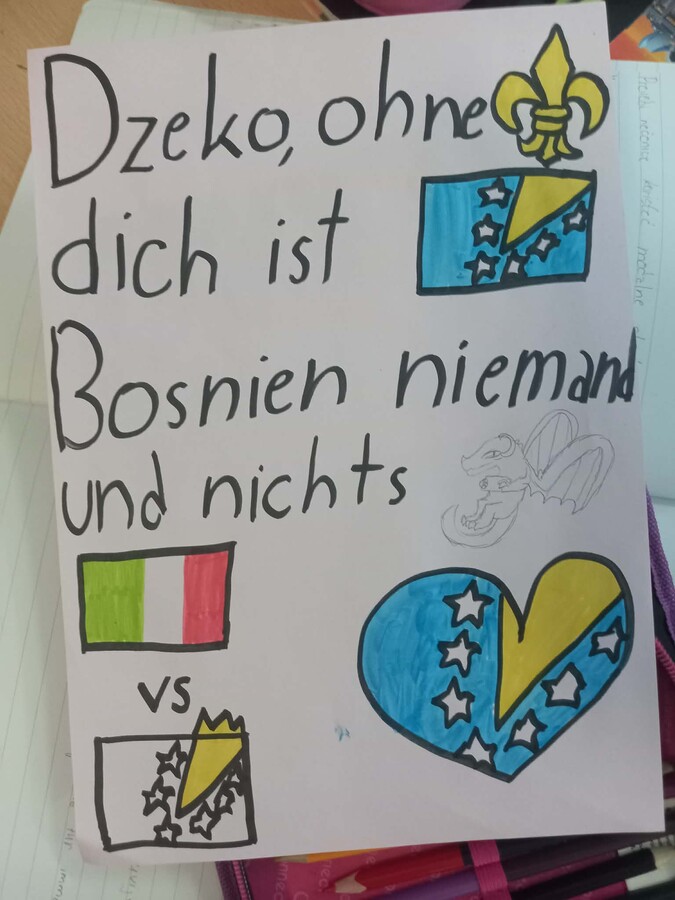 Dzeko, ohne
dich ist
Bosnien niemand
und nichts
vs